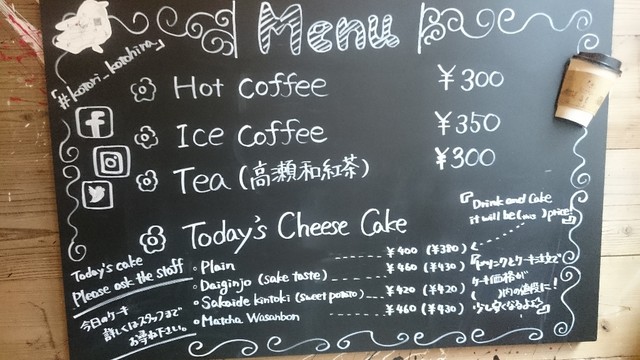 Menu
「#kotori_kotohira」
Hot Coffee ¥300
Ice Coffee ¥350
Tea (高瀬和紅茶) ¥300
Today's Cheese Cake
『Drink and Cake
it will be ( ) price!』
Today's cake
Please ask the staff
今日のケーキ
詳しくはスタッフまで
お尋ね下さい。
Plain ¥400 (¥380)
Daiginjo (sake taste) ¥460 (¥430)
Sakaide kintoki (sweet potato) ¥420 (¥420)
Matcha Wasanbon ¥460 (¥430)
『ドリンクとケーキ注文で
ケーキ価格が
( )内の値段に!
少し安くなるよ』